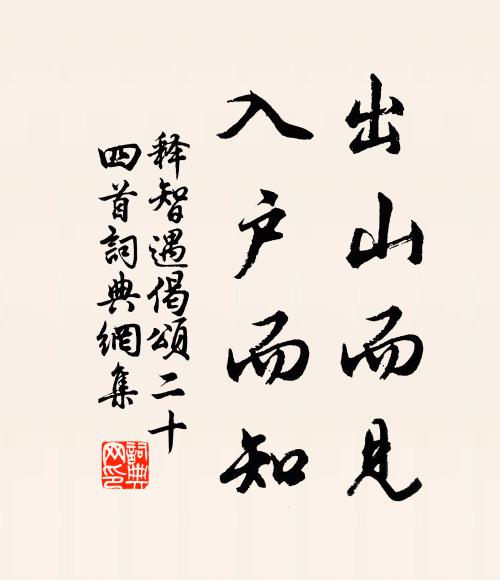 出山而见
入户而知
释智遇偈颂二十
四首詞典網集
詞典
网印